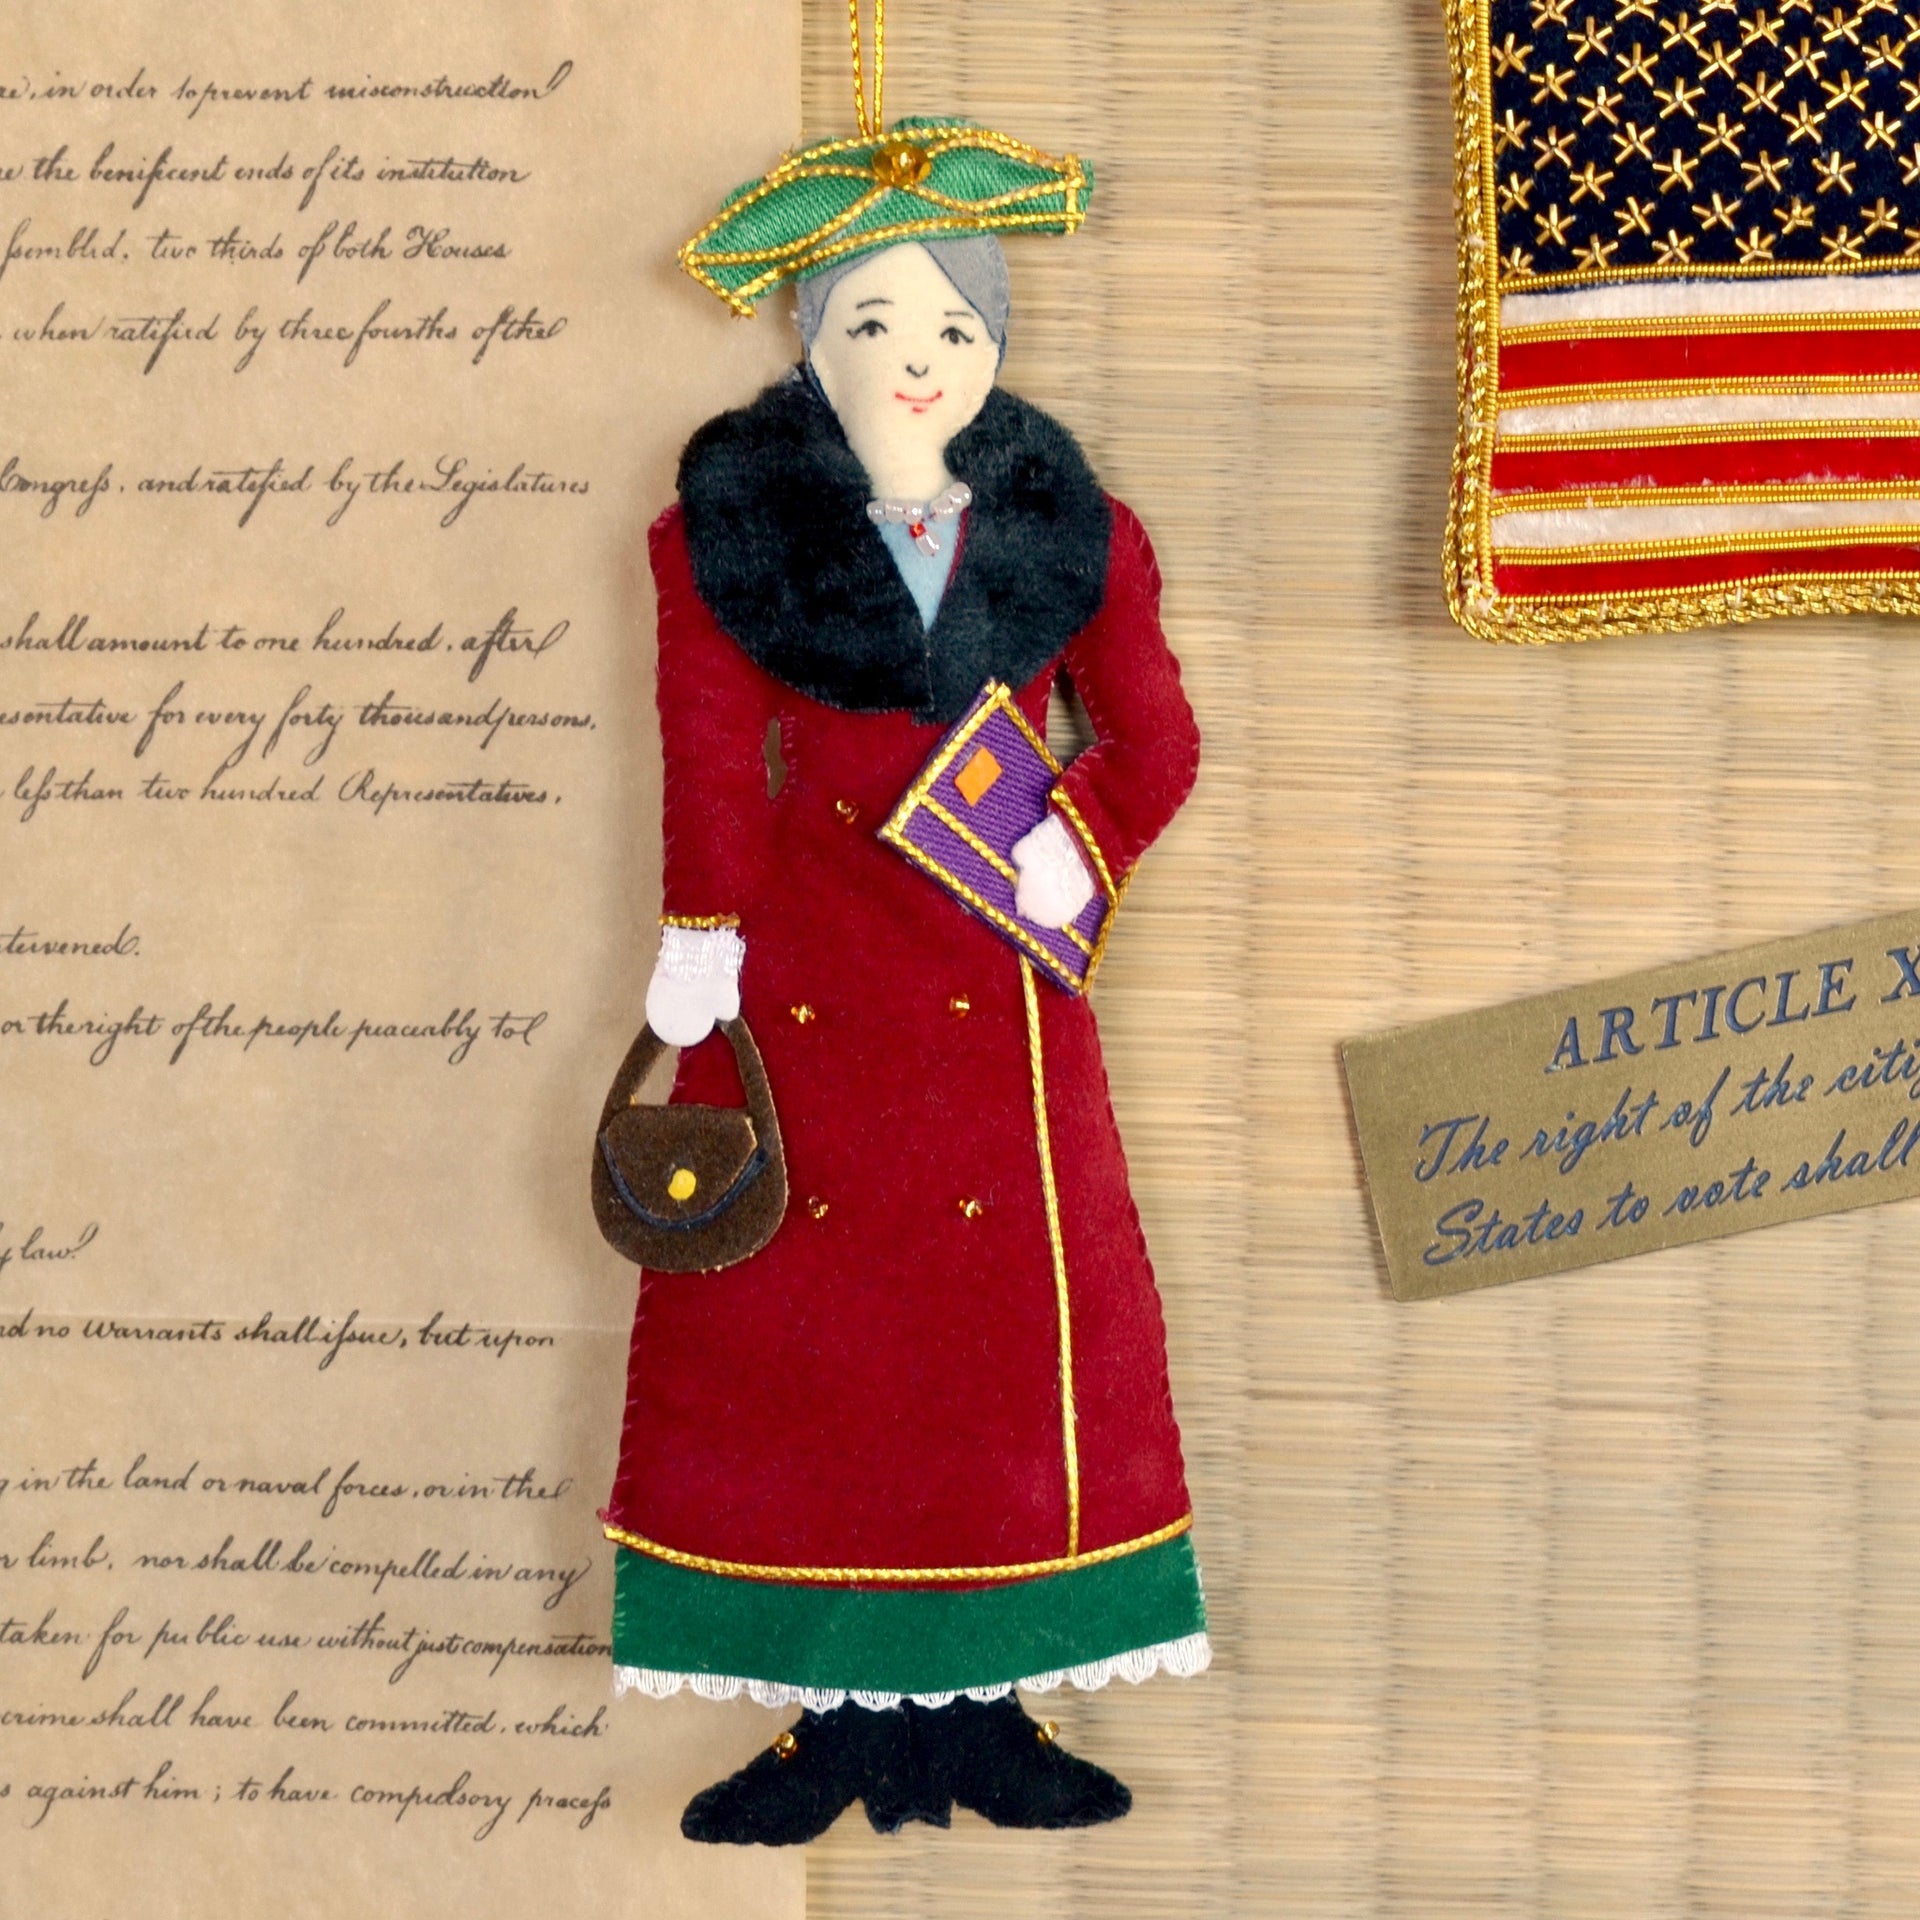 in order to prevent misconstruction
the benificent ends of its institution
ſsembled, two thirds of both Houses
when ratified by three fourths of the
Congreſs, and ratified by the Legislatures
shall amount to one hundred, after
esentative for every forty thousand persons,
leſs than two hundred Representatives,
tervened.
or the right of the people peaceably to
law.
nd no Warrants shall iſsue, but upon
in the land or naval forces, or in the
limb, nor shall be compelled in any
taken for public use without just compensation
crime shall have been committed, which
s against him; to have compulsory proceſs
ARTICLE X
The right of the citiz
States to vote shall